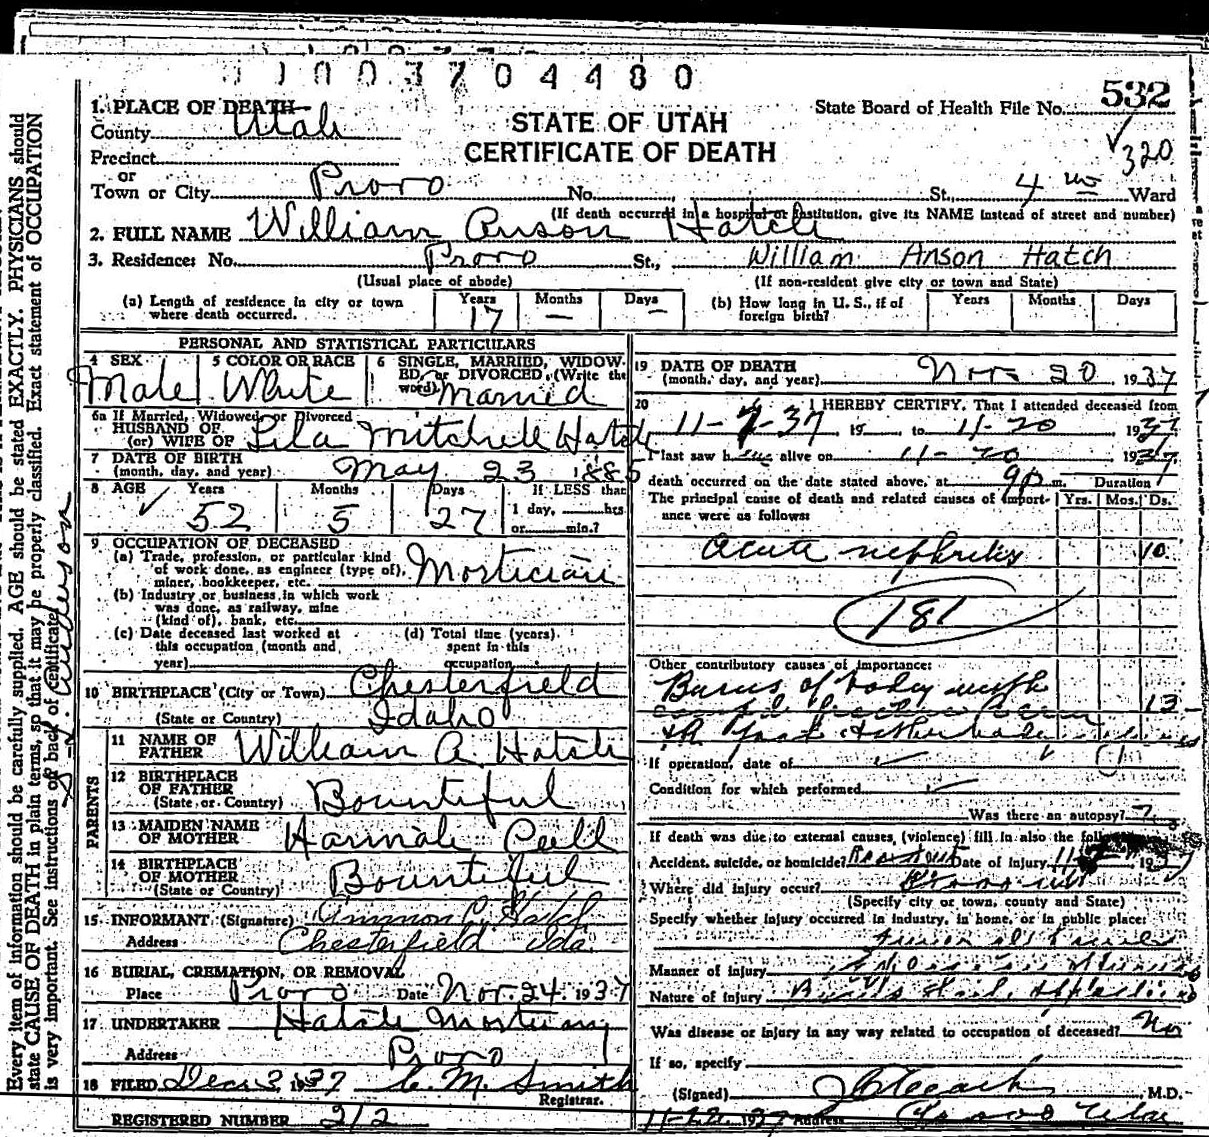 1 1 0 0 3 7 0 4 4 8 0
1. PLACE OF DEATH
State Board of Health File No. 532
County Utah
STATE OF UTAH
CERTIFICATE OF DEATH
✓320
Precinct
or
Town or City Provo No. St., 4 Ward
(If death occurred in a hospital or institution, give its NAME instead of street and number)
2. FULL NAME William Anson Hatch
3. Residence: No. Provo St., William Anson Hatch
(Usual place of abode) (If non-resident give city or town and State)
(a) Length of residence in city or town where death occurred. Years 17 Months — Days — (b) How long in U. S., if of foreign birth? Years Months Days
PERSONAL AND STATISTICAL PARTICULARS
4 SEX Male 5 COLOR OR RACE White 6 SINGLE, MARRIED, WIDOWED, or DIVORCED, (Write the word) Married
6a If Married, Widowed or Divorced
HUSBAND OF
(or) WIFE OF Lila Mitchell Hatch
7 DATE OF BIRTH
(month, day, and year) May 23 1885
8 AGE ✓ Years 52 Months 5 Days 27 If LESS than 1 day, hrs or min.?
9 OCCUPATION OF DECEASED
(a) Trade, profession, or particular kind
of work done, as engineer (type of),
miner, bookkeeper, etc. Mortician
(b) Industry or business in which work
was done, as railway, mine
(kind of), bank, etc.
(c) Date deceased last worked at
this occupation (month and
year)
(d) Total time (years)
spent in this
occupation
10 BIRTHPLACE (City or Town) Chesterfield
(State or Country) Idaho
PARENTS
11 NAME OF
FATHER William A. Hatch
12 BIRTHPLACE
OF FATHER
(State or Country) Bountiful
13 MAIDEN NAME
OF MOTHER Hannah
14 BIRTHPLACE
OF MOTHER
(State or Country) Bountiful
15 INFORMANT (Signature) Ammon Hatch
Address Chesterfield Ida
16 BURIAL, CREMATION, OR REMOVAL
Place Provo Date Nov. 24. 1937
17 UNDERTAKER Hatch Mortuary
Address Provo
18 FILED Dec 3 1937 C. M. Smith
Registrar.
REGISTERED NUMBER 212
19 DATE OF DEATH
(month, day, and year) Nov 20 1937
20 I HEREBY CERTIFY, That I attended deceased from
11-7-37 19 to 11-20 1937
I last saw h alive on 11-20 1937
death occurred on the date stated above, at 9p m. Duration
The principal cause of death and related causes of importance were as follows: Yrs. Mos. Ds.
Acute nephritis 10
181
Other contributory causes of importance:
Burns of body with 13
If operation, date of
Condition for which performed
Was there an autopsy?
If death was due to external causes, (violence) fill in also the
Accident, suicide, or homicide? Date of injury 11-7 1937
Where did injury occur?
(Specify city or town, county and State)
Specify whether injury occurred in industry, in home, or in public place:
Manner of injury
Nature of injury Burns
Was disease or injury in any way related to occupation of deceased? No
If so, specify
(Signed) M.D.
11-22 1937 Address Provo Utah
Every item of information should be carefully supplied. AGE should be stated EXACTLY. PHYSICIANS should
state CAUSE OF DEATH in plain terms, so that it may be properly classified. Exact statement of OCCUPATION
is very important. See instructions on back of certificate.
Anderson